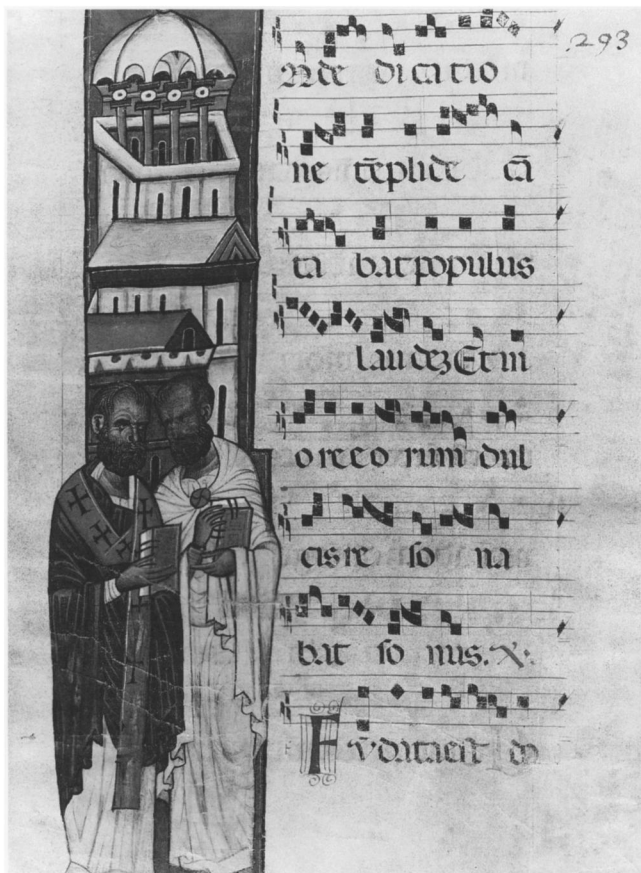 293
N de di ca tio
ne tēplide cā
ta bat populus
lau dez Et in
o re eo rum dul
cis re so na
bat so nus. V.
Fūdata est do